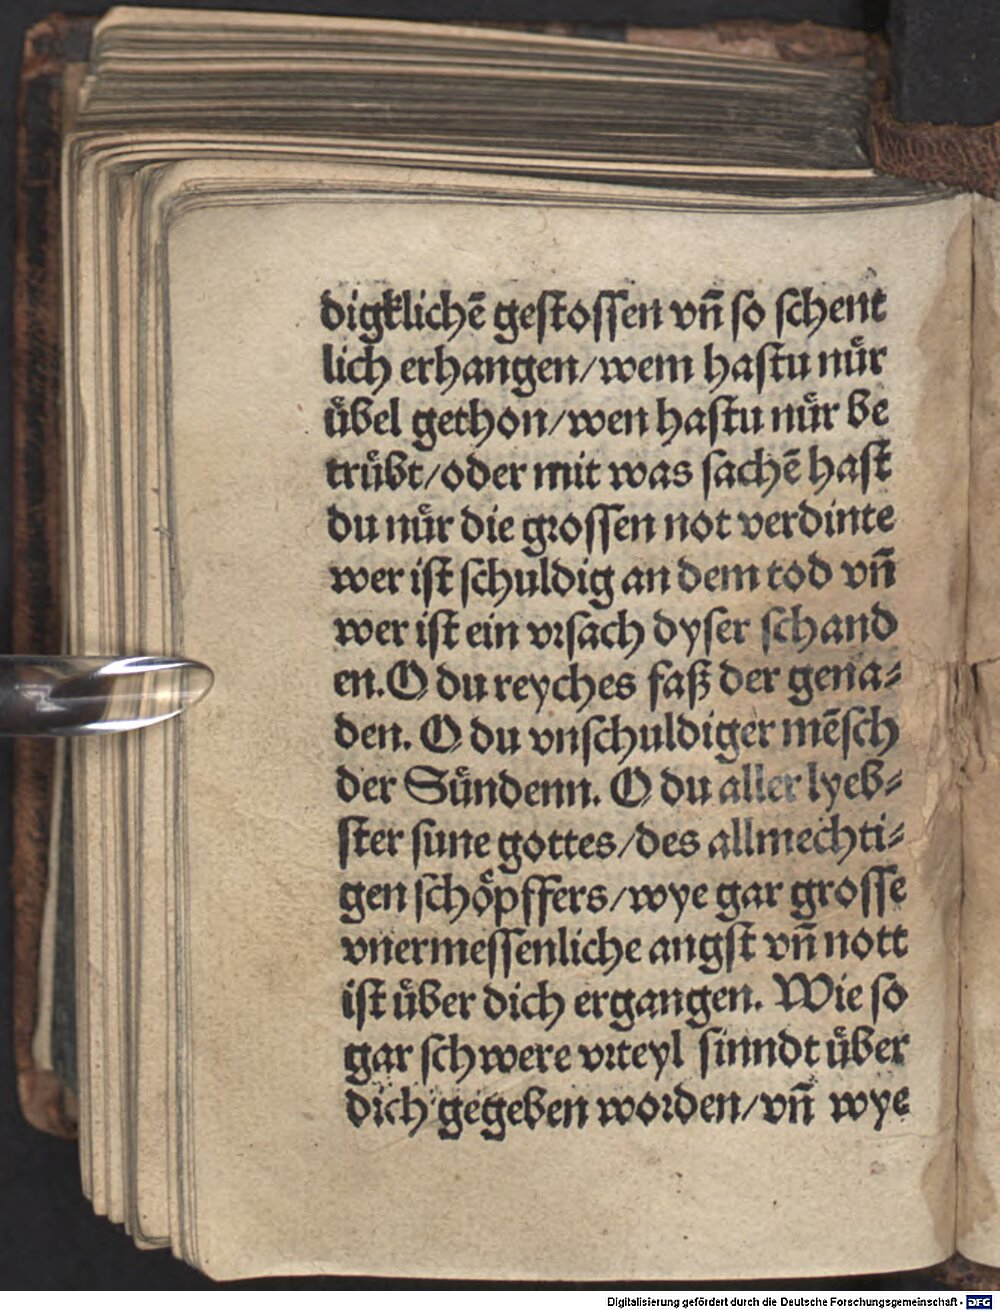 digklichē gestossen vn̄ so schent
lich erhangen/wem hastu nuͤr
uͤbel gethon/wen hastu nuͤr be
truͤbt/oder mit was sachē hast
du nuͤr die grossen not verdinte
wer ist schuldig an dem tod vn̄
wer ist ein vrsach dyser schand
en. O du reyches faß der gena⸗
den. O du vnschuldiger mēsch
der Suͤndenn. O du aller lyeb⸗
ster sune gottes/des allmechti⸗
gen schoͤpffers/wye gar grosse
vnermessenliche angst vn̄ nott
ist uͤber dich ergangen. Wie so
gar schwere vrteyl sinndt uͤber
dich gegeben worden/vn̄ wye
Digitalisierung gefördert durch die Deutsche Forschungsgemeinschaft - DFG